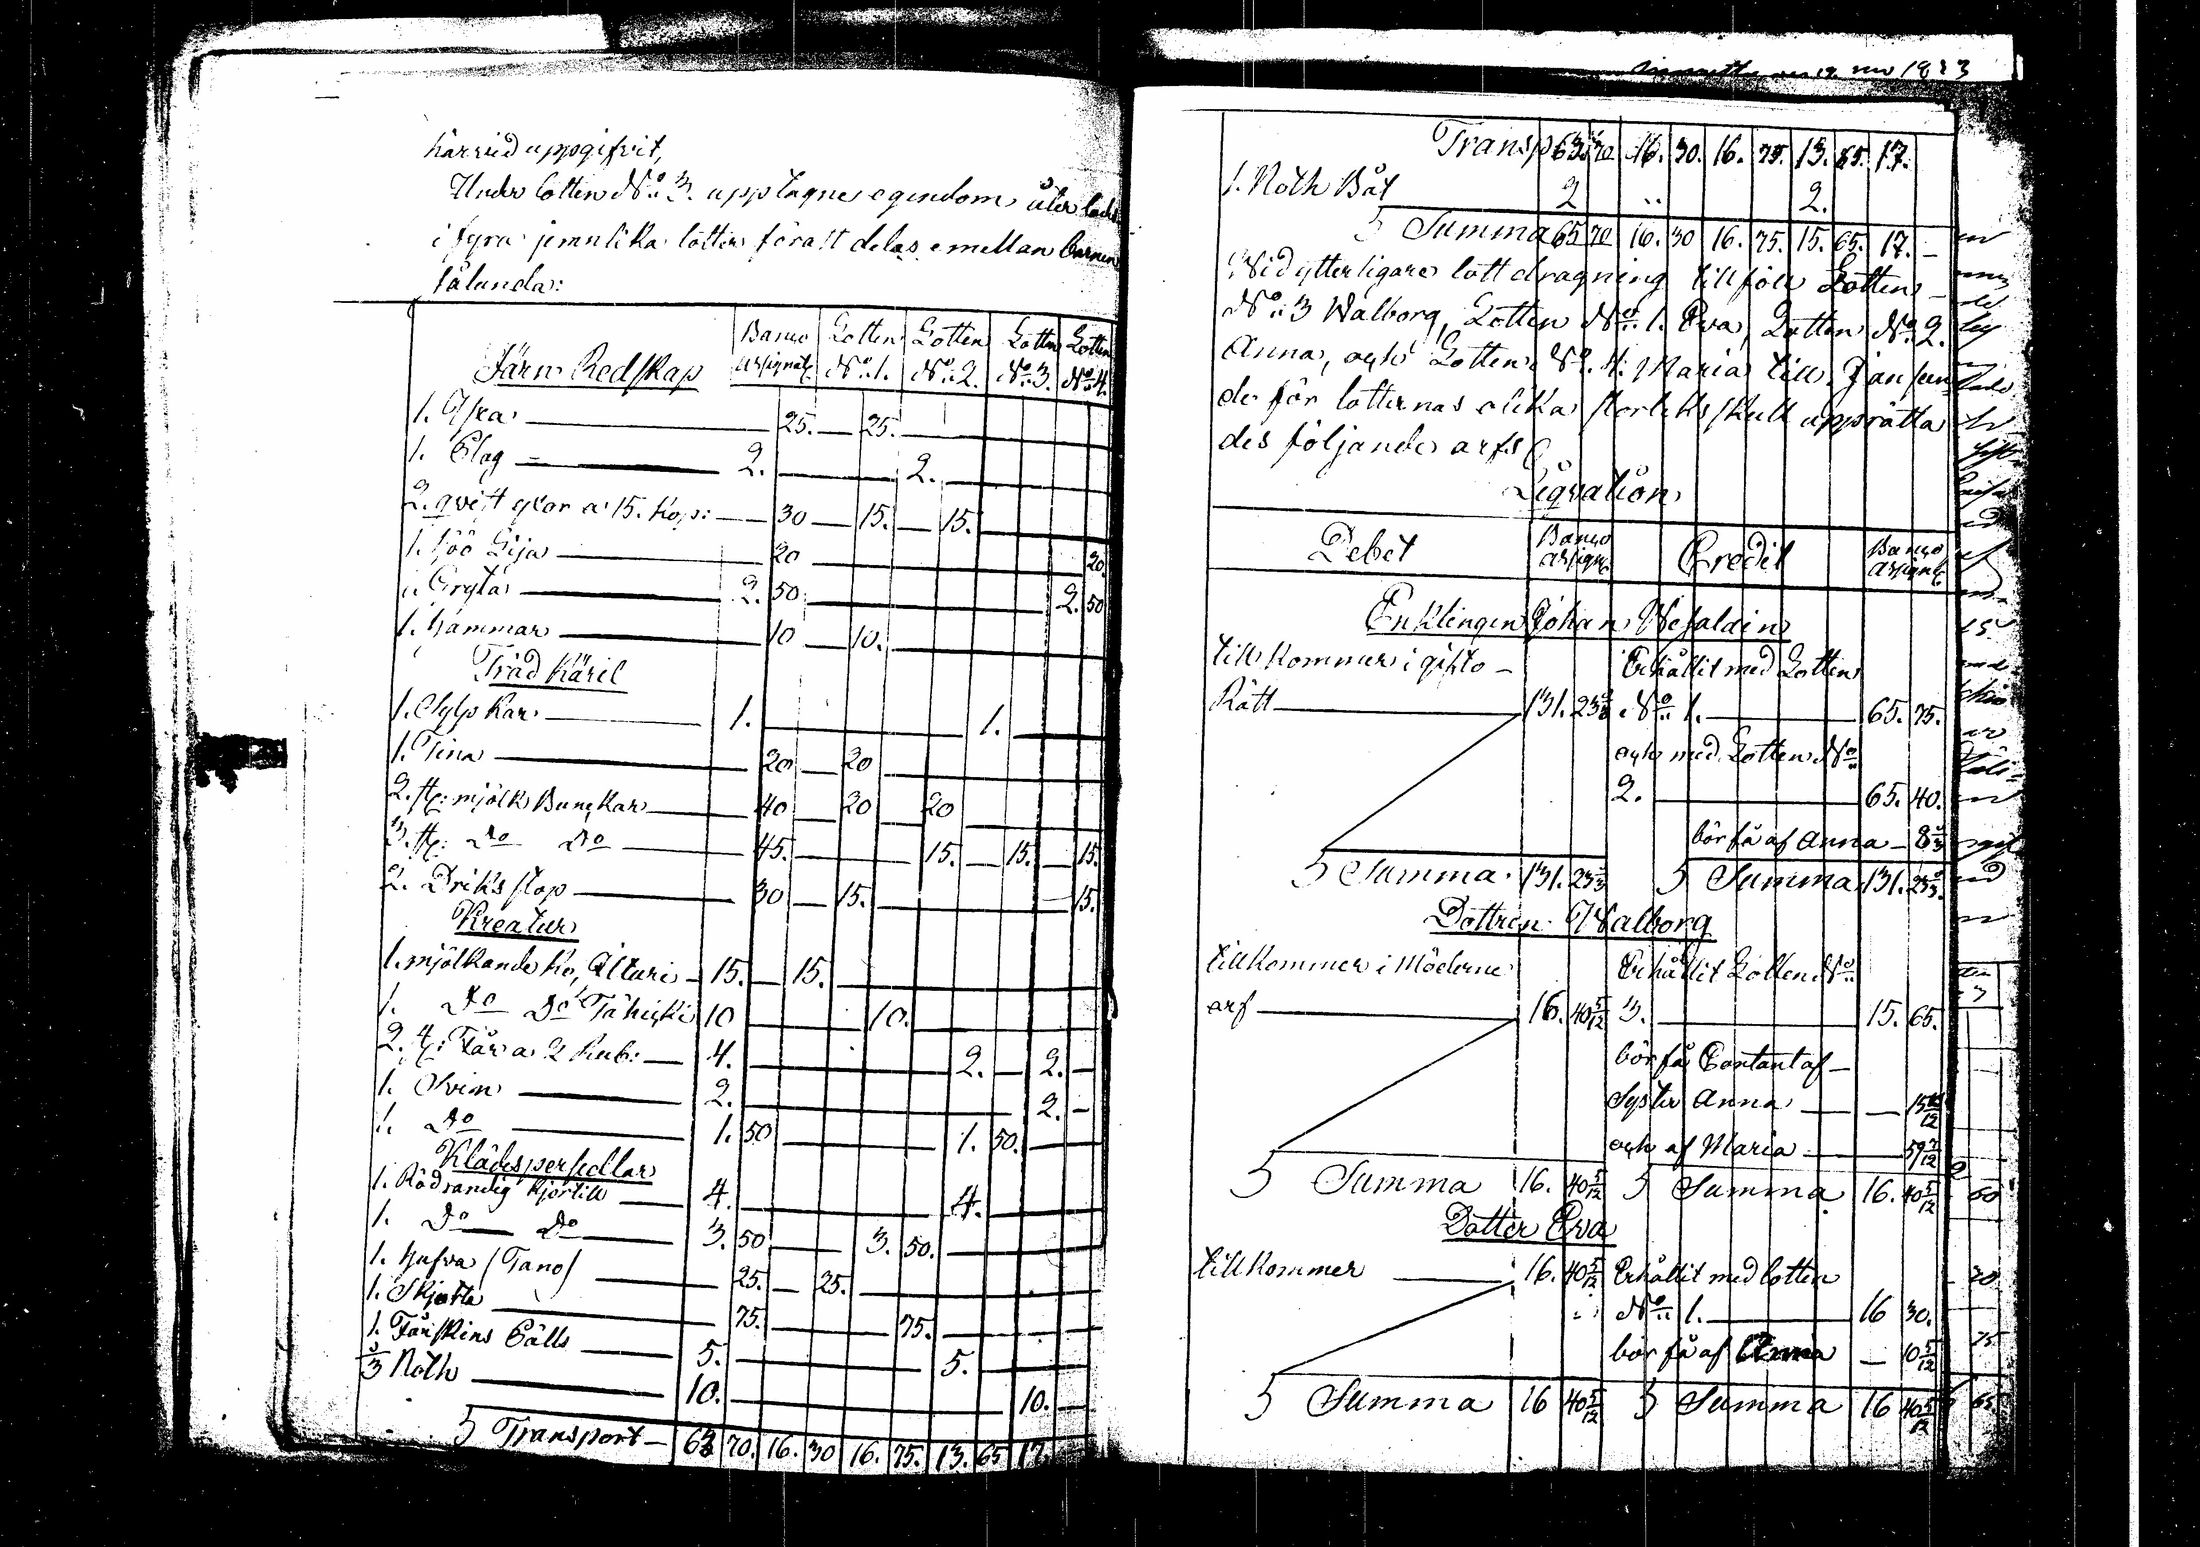 härvid uppgifvit,
Under lotten No: 3. upptagne egendom åter lades
i fyra jemnlika lotter för att delas emellan Barnen
sålunda:
Järn Redskap Banco Assignat: Lotten No: 1. Lotten No: 2. Lotten No: 3. Lotten No: 4.
1. Yxa 25. 25.
1. Plog 2. 2.
2. qvist yxor a 15. Kop: 30 15. 15.
1. höö Lija 20 20.
1. Gryta 2. 50 2. 50
1. hammar 10 10.
Träd Käril
1. Karr 1. 1.
1. Tina 20 20
2. st: mjölk Bunckar 40 20 20
3. st: Do Do 45. 15. 15. 15.
2. Driks stop 30 15. 15.
Kreatur
1. mjölkande Ko, 15. 15.
1. Do Do 10 10.
2. st: Får a 2 Rub: 4. 2. 2.
1. Svin 2. 2.
1. Do 1. 50 1. 50.
Klädespersedlar
1. Rödrandig kjortell 4. 4.
1. Do Do 3. 50 3. 50.
1. hufva (Tano) 25. 25.
1. Skjorta 75. 75.
1. Fårskins Pälls 5. 5.
1/3 Noth 10. 10.
Transport 63 70. 16. 30 16. 75. 13. 65 17.
1823
Transp 63. 70 16. 30. 16. 75. 13. 65. 17.
1. Noth Båt 2 2.
Summa 65 70 16. 30 16. 75. 15. 65. 17. -
Wid ytterligare lottdragning tillföll Lotten
No: 3 Walborg, Lotten No: 1. Eva, Lotten No: 2.
Anna, och Lotten No: 4: Maria till. Jän
de för lotternas olika storleks skull upprätta
des följande arfs
Liqvation
Debet Banco Assign: Credit Banco Assignat:
Enklingen Johan
till kommer i gifto - Erhållit med Lotten
Rätt 131. 23 1/3 No: 1. 65. 75.
och med Lotten No:
2. 65. 40.
bör få af Anna - 8 1/3
Summa 131. 23 1/3 Summa 131. 23 1/3.
Dottren Walborg
tillkommer i Möderne Erhållit Lotten No:
arf 16. 40 5/12 3. 15. 65.
bör få Contant af -
Syster Anna
och af Maria
Summa 16. 40 5/12 Summa 16. 40 5/12
Dotter Eva
till kommer 16. 40 5/12 Erhållit med lotten
No: 1. 16 30.
bör få af Anna - 10 5/12
Summa 16 40 5/12 Summa 16 40 5/12